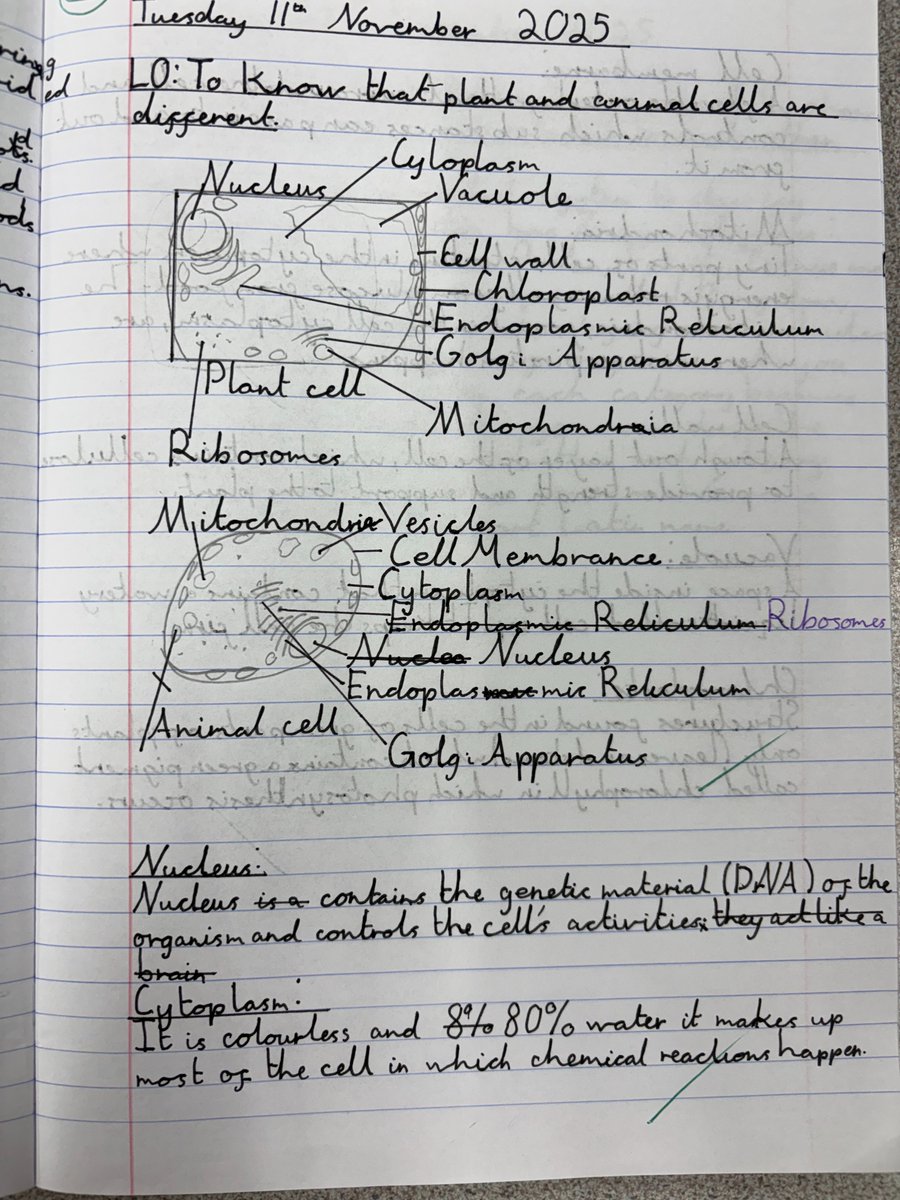 Tuesday 11th November 2025
LO: To Know that plant and animal cells are
different.
Nucleus
Cytoplasm
Vacuole
Cell wall
Chloroplast
Endoplasmic Reliculum
Golgi Apparatus
Plant cell
Mitochondraia
Ribosomes
Mitochondria
Vesicles
Cell Membrance
Cytoplasm
Endoplasmic Reliculum Ribosomes
Nucleo Nucleus
Endoplasmic Reliculum
Animal cell
Golgi Apparatus
Nucleus:
Nucleus is a contains the genetic material (DNA) of the
organism and controls the cell's activities; they act like a
brain
Cytoplasm:
It is colourless and 8% 80% water it makes up
most of the cell in which chemical reactions happen.